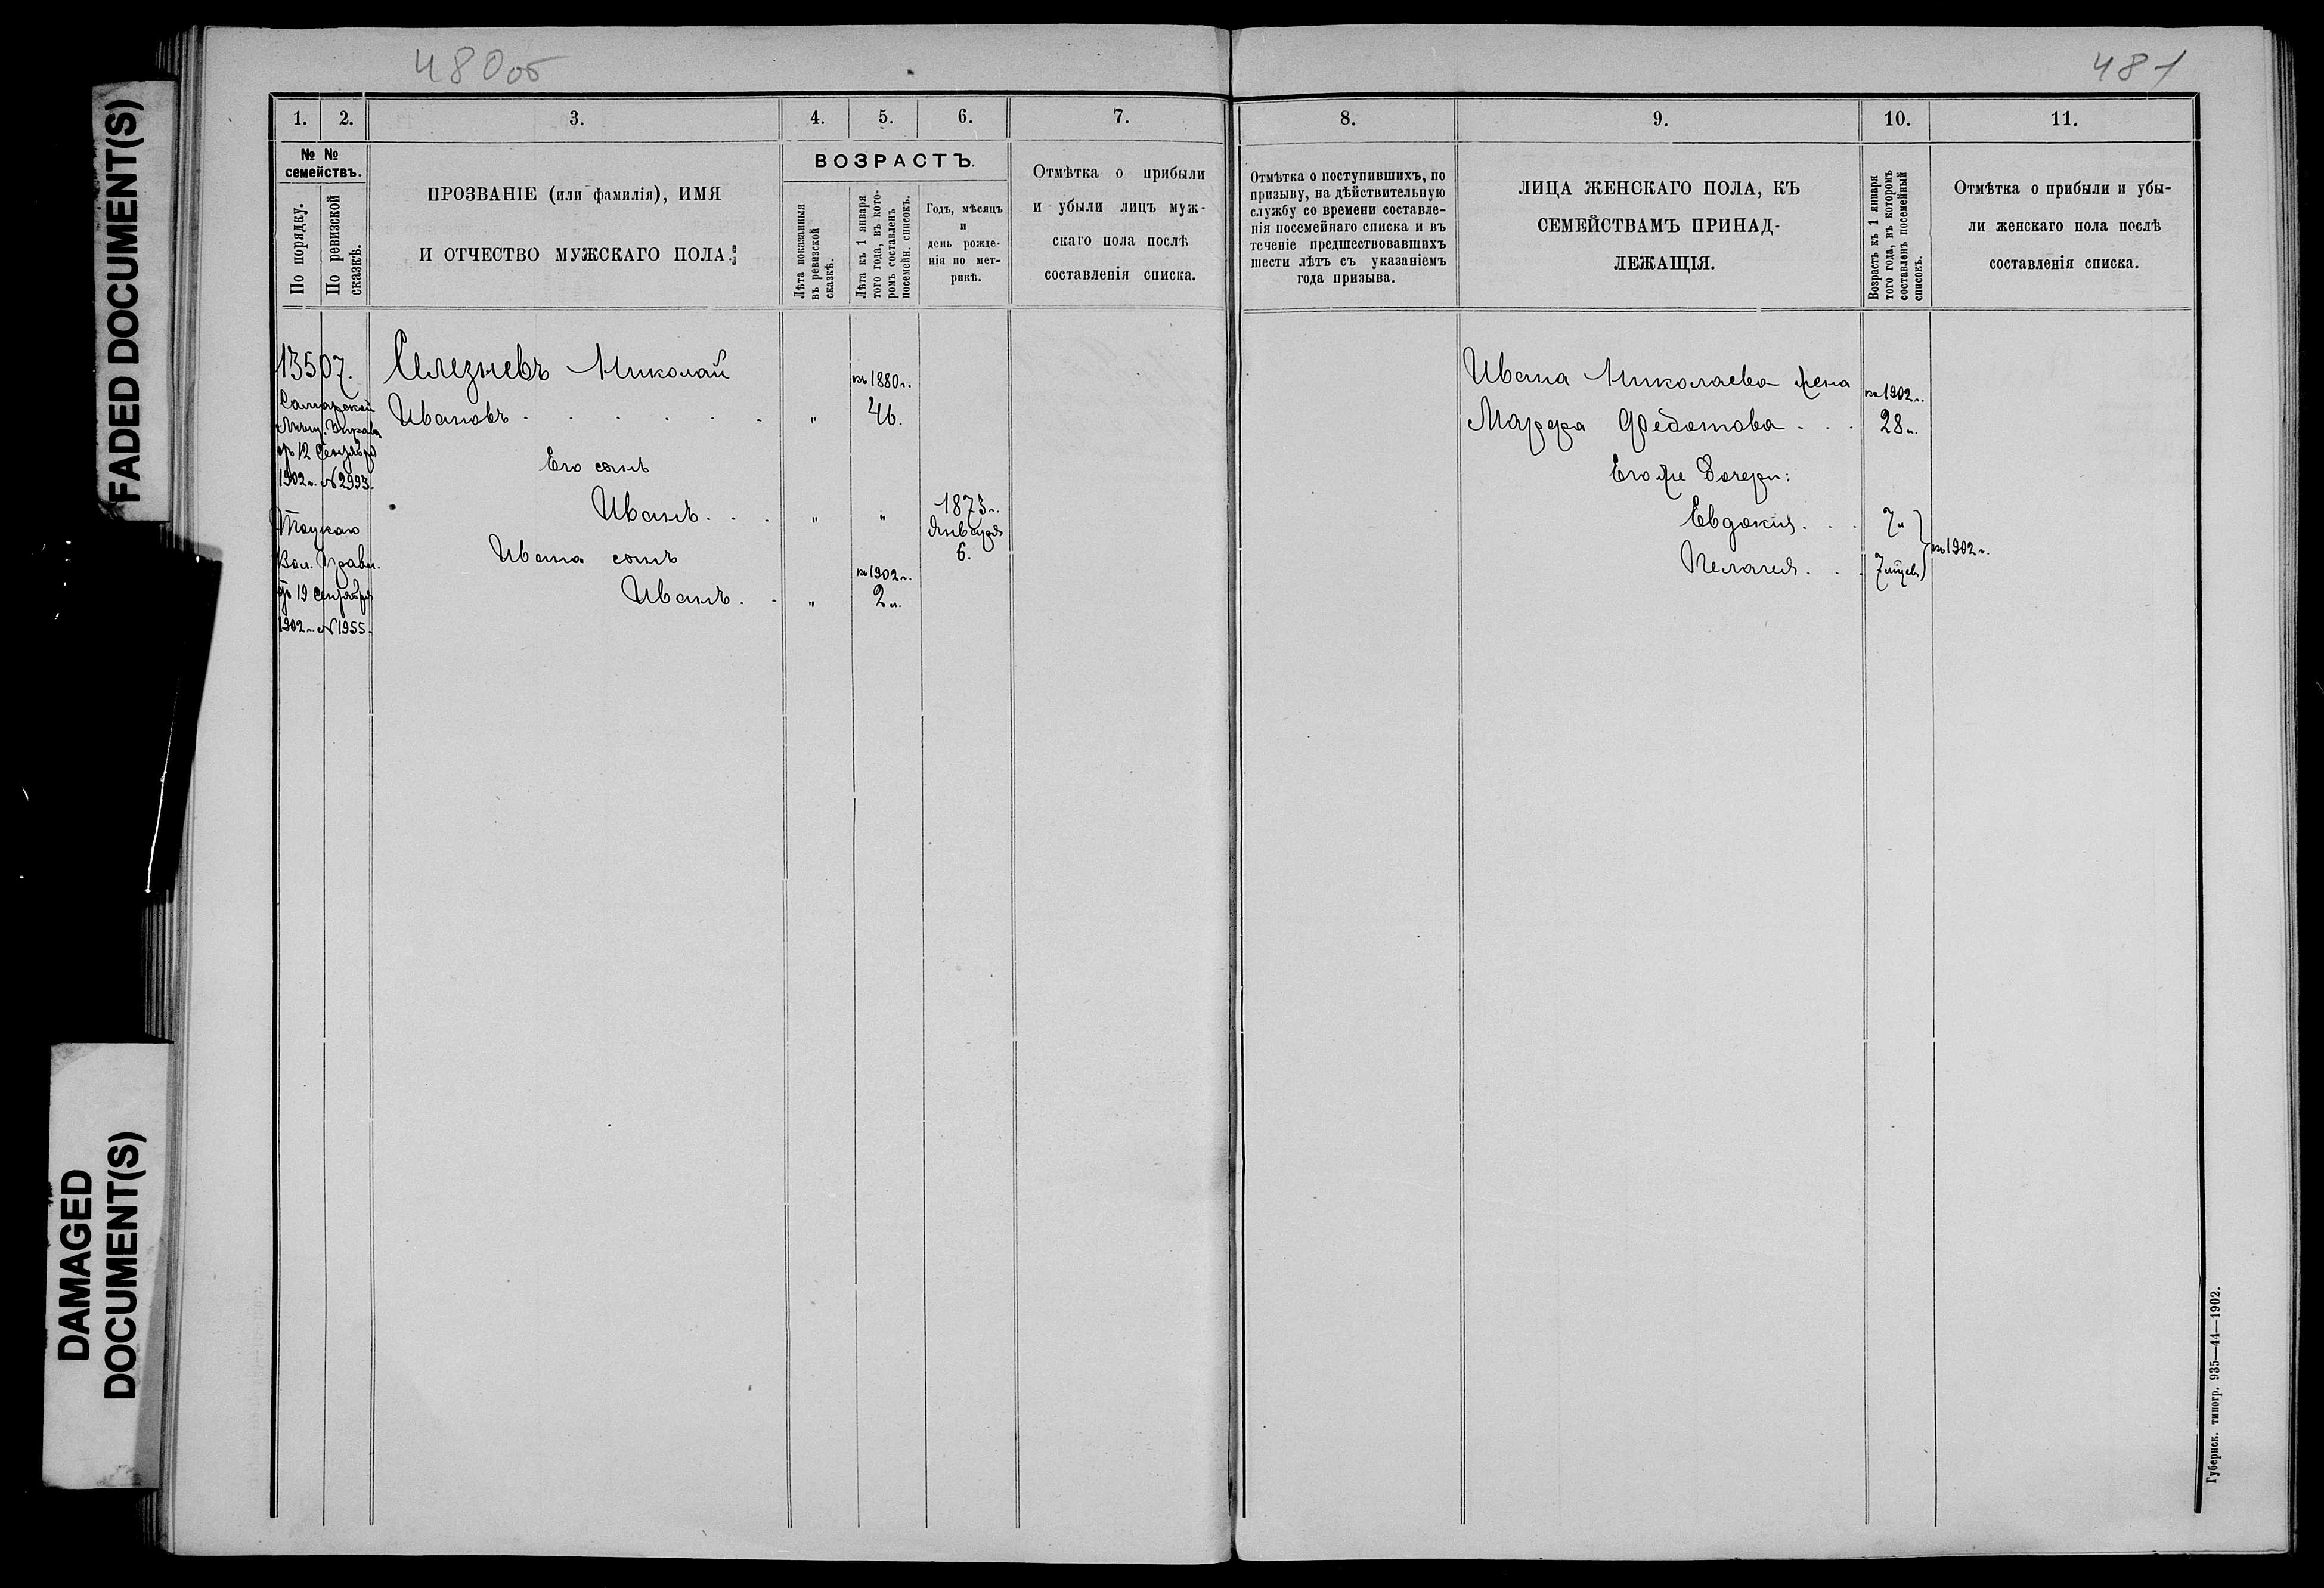 FADED DOCUMENT(S)
DAMAGED
DOCUMENT(S)
480об
1. 2. 3. 4. 5. 6. 7.
№ №
семействъ.
По порядку.
По ревизской
сказкѣ.
ПРОЗВАНІЕ (или фамилія), ИМЯ
И ОТЧЕСТВО МУЖСКАГО ПОЛА.
ВОЗРАСТЪ.
Лѣта показанныя
въ ревизской
сказкѣ.
Лѣта къ 1 января
того года, въ кото-
ромъ составленъ
посемейн. списокъ.
Годъ, мѣсяцъ
и
день рожде-
нія по мет-
рикѣ.
Отмѣтка о прибыли
и убыли лицъ муж-
скаго пола послѣ
составленія списка.
13507.
Самарской
Мѣщ. Управы
отъ 12 Сентября
1902 г. № 2993.
Вол. Правл.
отъ 19 Сентября
1902 г. № 1955.
Селезневъ Николай
Ивановъ . . . . . . „ въ 1880 г. 46.
Его сынъ
Иванъ . . . „ „ 1873 г. Января 6.
Ивана сынъ
Иванъ . . „ въ 1902 г. 2 л.
481
8. 9. 10. 11.
Отмѣтка о поступившихъ, по
призыву, на дѣйствительную
службу со времени составле-
нія посемейнаго списка и въ
теченіе предшествовавшихъ
шести лѣтъ съ указаніемъ
года призыва.
ЛИЦА ЖЕНСКАГО ПОЛА, КЪ
СЕМЕЙСТВАМЪ ПРИНАД-
ЛЕЖАЩІЯ.
Возрастъ къ 1 января
того года, въ которомъ
составленъ посемейный
списокъ.
Отмѣтка о прибыли и убы-
ли женскаго пола послѣ
составленія списка.
Ивана Николаева жена
Марфа Федотова . . . въ 1902 г. 28 л.
Его же дочери:
Евдокия . . . 7 л
Пелагея . . . 7 мѣсяц. въ 1902 г.
Губернск. типогр. 935—44—1902.